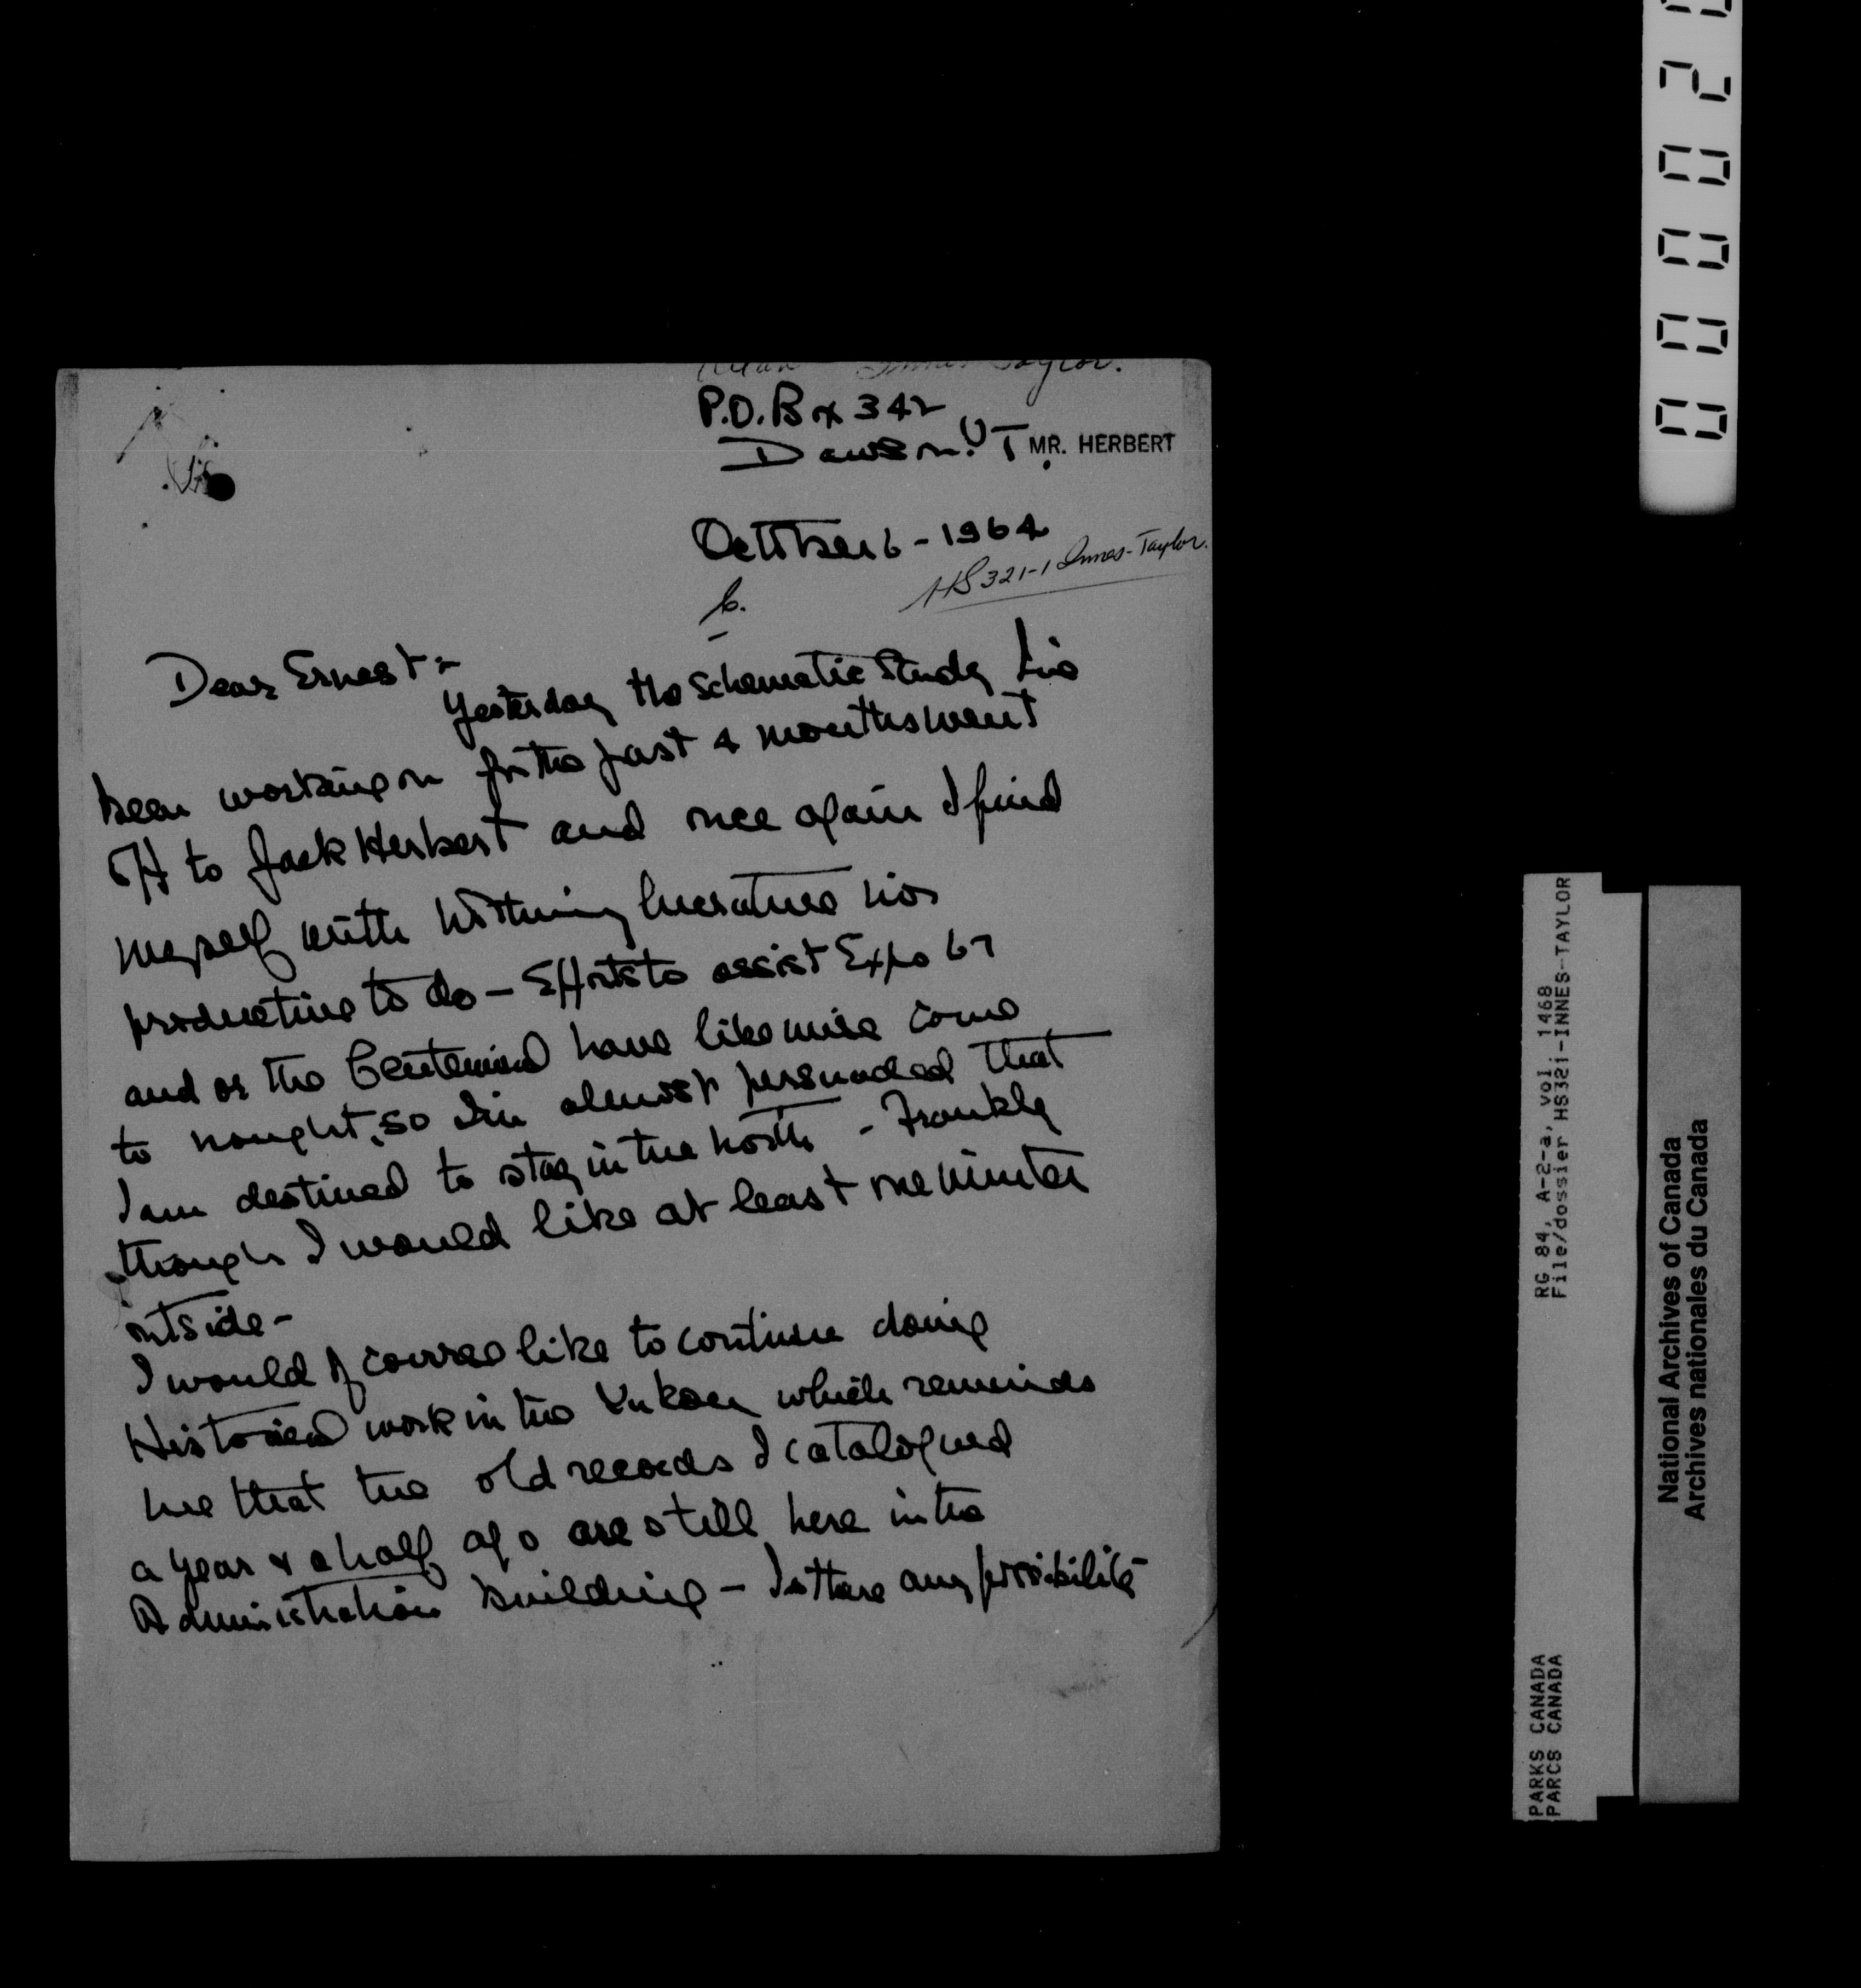 Allan Innes-Taylor.
P.O. Box 342
Dawson. Y T.
MR. HERBERT
October 6 - 1964
HS 321-1 Innes-Taylor.
Dear Ernest:-
Yesterday the Schematic Study I've
been working on for the past 4 months went
off to Jack Herbert and once again I find
myself with nothing lucrative nor
productive to do - Efforts to assist Expo 67
and or the Centennial have likewise come
to nought, so I'm almost persuaded that
I am destined to stay in the north - Frankly
though I would like at least one winter
outside -
I would of course like to continue doing
Historical work in the Yukon which reminds
me that the old records I catalogued
a year & a half ago are still here in the
Administration building - Is there any possibility
0 0 0 0 2
RG 84, A-2-a, vol. 1468
File/dossier HS321-INNES-TAYLOR
PARKS CANADA
PARCS CANADA
National Archives of Canada
Archives nationales du Canada